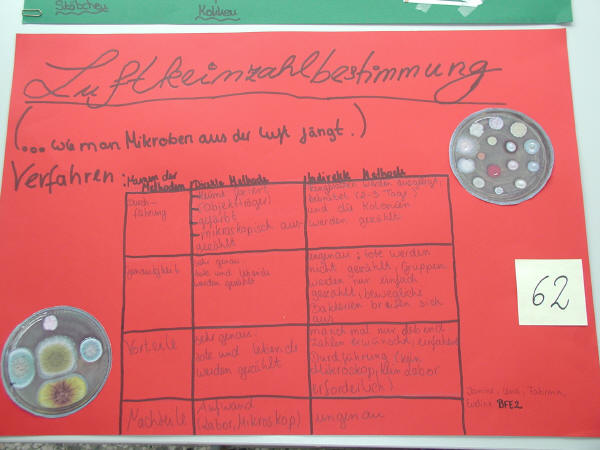 Stäbchen
Kokken
Luftkeimzahlbestimmung
(... wie man Mikroben aus der Luft fängt.)
Verfahren:
Methoden
Direkte Methode
Indirekte Methode
Durch-
führung
(Objektträger)
gefärbt
mikroskopisch aus-
gezählt
bebrütet (2-3 Tage)
und die Kolonien
werden gezählt
Genauigkeit
sehr genau
tote und lebende
werden gezählt
ungenau: tote werden
nicht gezählt, Gruppen
werden nur einfach
gezählt, bewegliche
Bakterien breiten sich
aus
62
Vorteile
sehr genau:
tote und lebende
werden gezählt
manchmal nur lebend
zahlen erwünscht, einfache
Durchführung (kein
Mikroskop, kein Labor
erforderlich)
Nachteile
Aufwand
(Labor, Mikroskop)
ungenau
BFE2